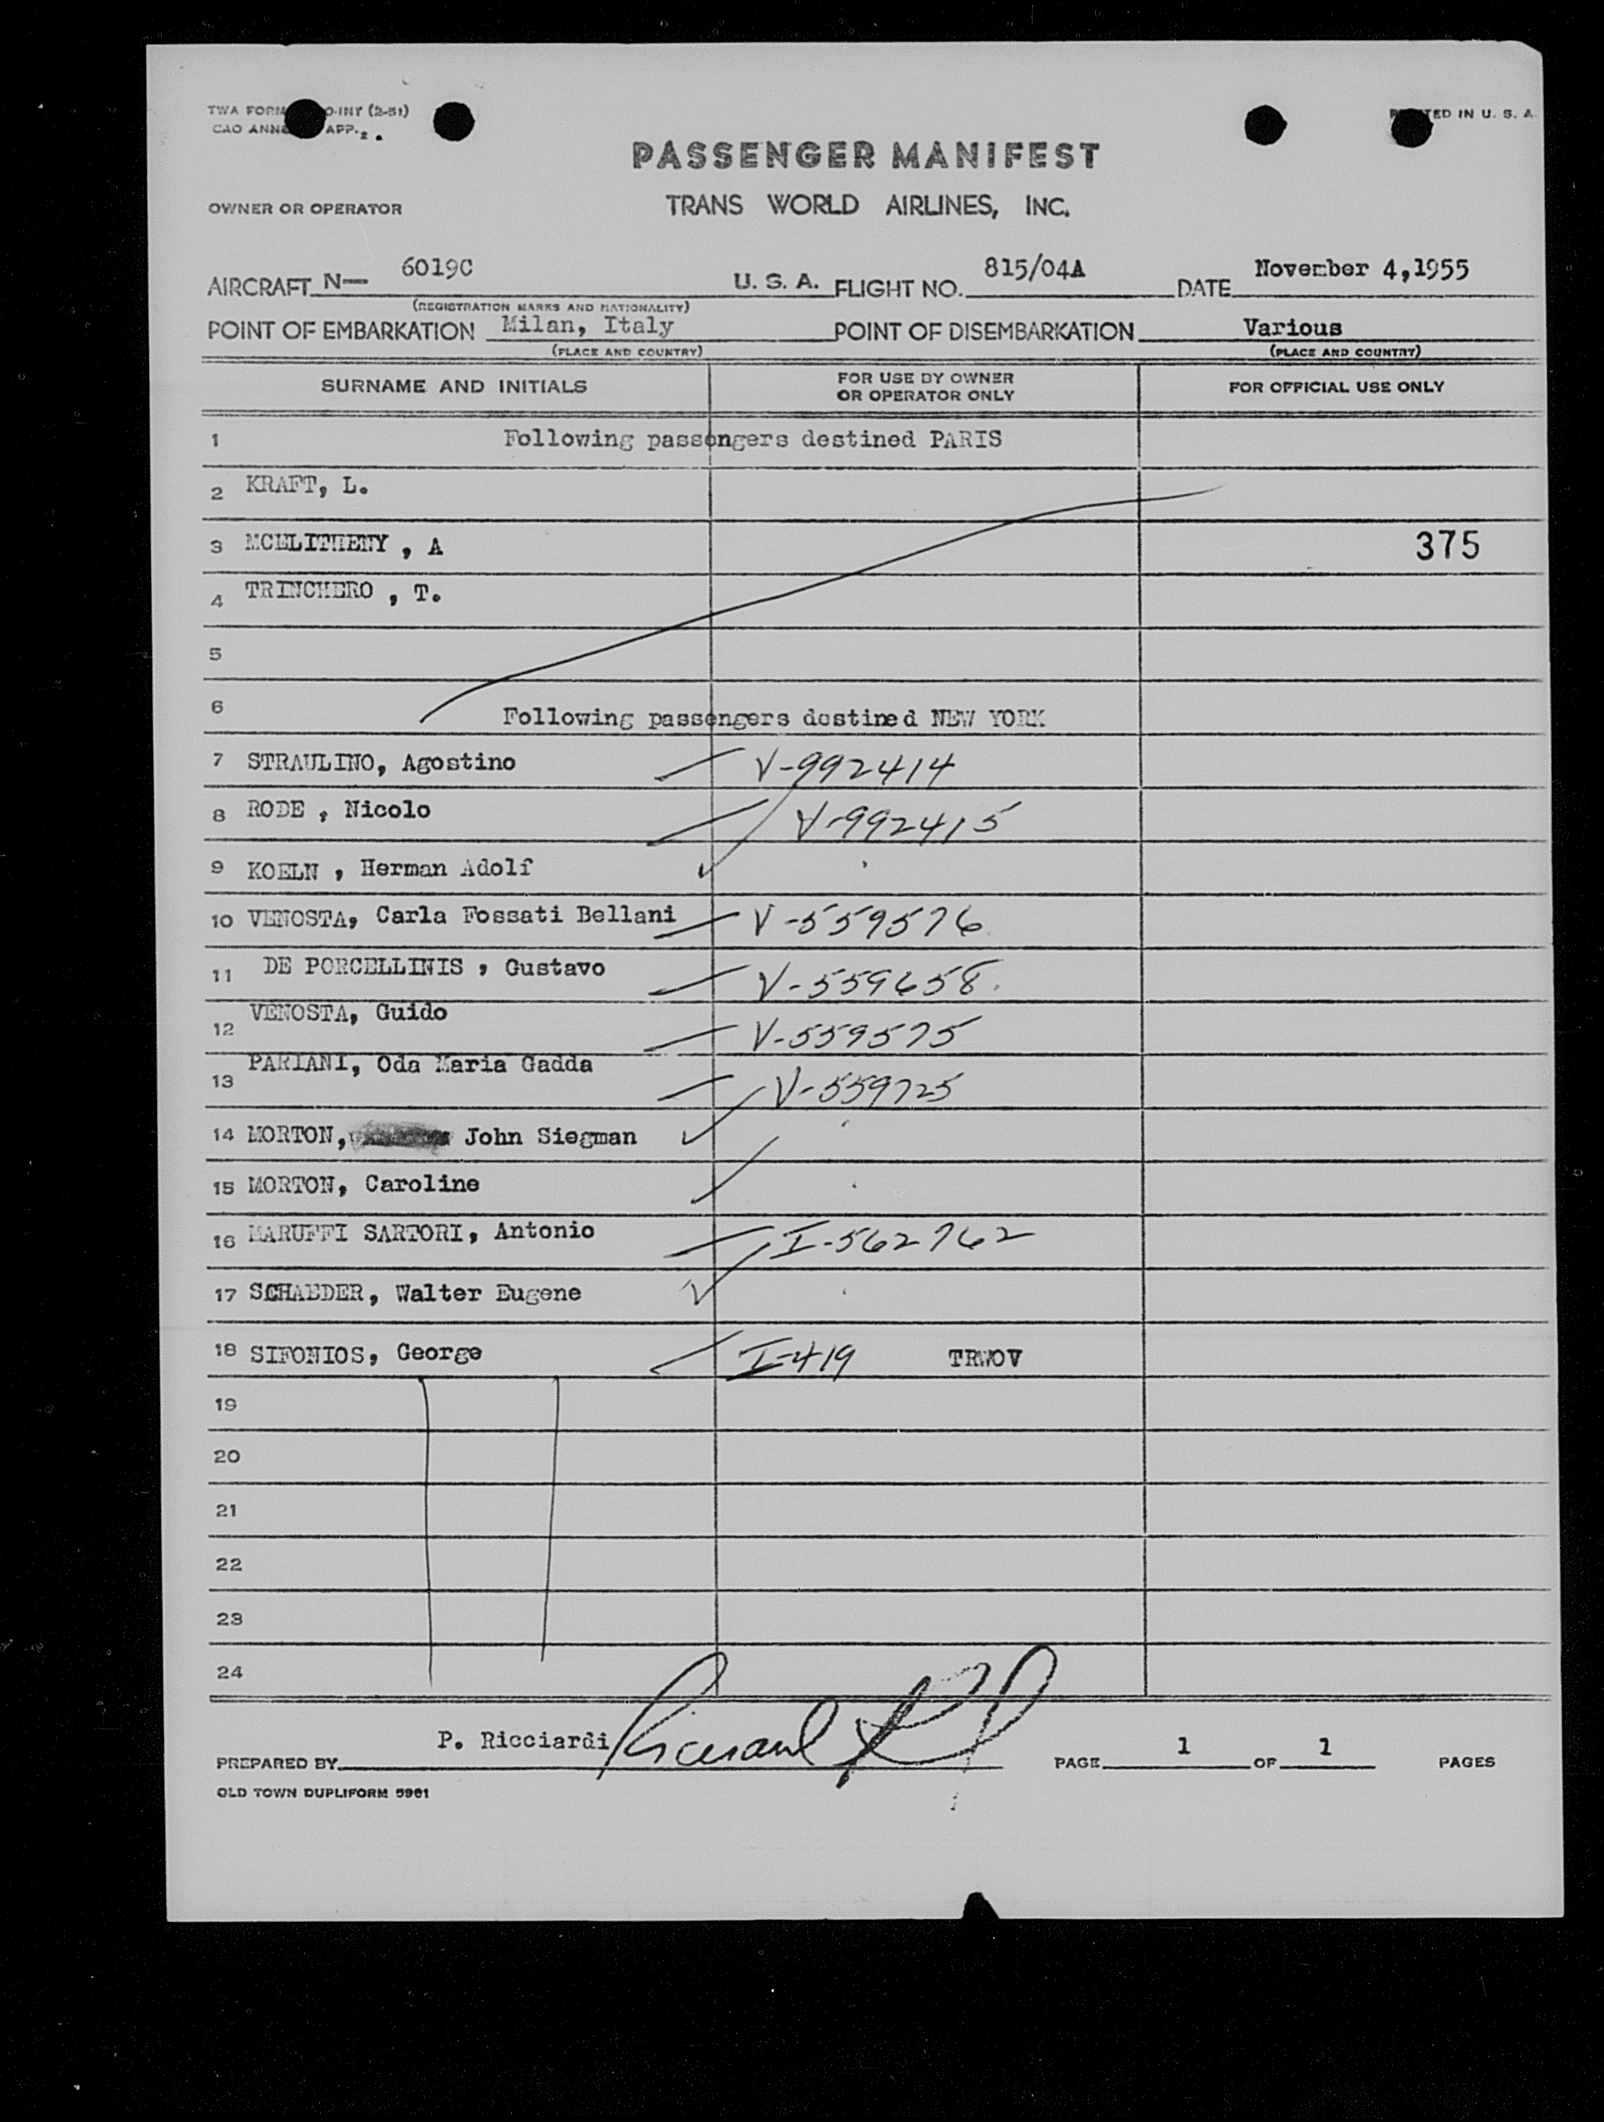 TWA FORM O-INT (2-51)
CAO ANNE APP. 2.
TED IN U. S. A.
PASSENGER MANIFEST
OWNER OR OPERATOR TRANS WORLD AIRLINES, INC.
AIRCRAFT N— 6019C U. S. A. FLIGHT NO. 815/04A DATE November 4,1955
(REGISTRATION MARKS AND NATIONALITY)
POINT OF EMBARKATION Milan, Italy POINT OF DISEMBARKATION Various
(PLACE AND COUNTRY) (PLACE AND COUNTRY)
SURNAME AND INITIALS FOR USE BY OWNER OR OPERATOR ONLY FOR OFFICIAL USE ONLY
1 Following passengers destined PARIS
2 KRAFT, L.
3 MCELITHENY , A 375
4 TRINCHERO , T.
5
6 Following passengers destined NEW YORK
7 STRAULINO, Agostino V-992414
8 RODE , Nicolo V-992415
9 KOELN , Herman Adolf
10 VENOSTA, Carla Fossati Bellani V-559576
11 DE PORCELLINIS , Gustavo V-559658.
12 VENOSTA, Guido V-559575
13 PARIANI, Oda Maria Gadda V-559725
14 MORTON, John Siegman
15 MORTON, Caroline
16 MARUFFI SARTORI, Antonio I-562762
17 SCHAEDER, Walter Eugene
18 SIFONIOS, George I-419 TRWOV
19
20
21
22
23
24
PREPARED BY P. Ricciardi PAGE 1 OF 1 PAGES
OLD TOWN DUPLIFORM 5961